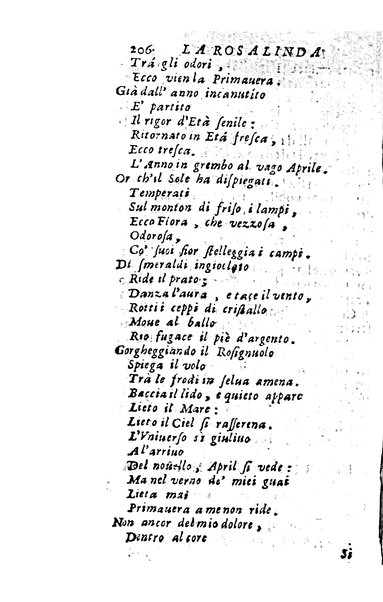 206 LA ROSALINDA
Trá gli odori,
Ecco vien la Primauera.
Già dall' anno incanutito
E' partito
Il rigor d'Età ſenile:
Ritornato in Età freſca,
Ecco treſca.
L'Anno in grembo al vago Aprile.
Or ch'il Sole ha diſpiegati.
Temperati
Sul monton di friſo i lampi,
Ecco Flora, che vezzoſa,
Odoroſa,
Co' ſuoi fior ſtelleggia i campi.
Di ſmeraldi ingioelato
Ride il prato;
Danza l'aura, e tace il vento,
Rotti i ceppi di criſtallo
Moue al ballo
Rio fugace il piè d'argento.
Gorgheggiando il Roſignuolo
Spiega il volo
Tra le frodi in ſelua amena.
Baccia il lido, e quieto appare
Lieto il Mare:
Lieto il Ciel ſi raſſerena.
L'Vniuerſo si giuliuo
Al'arriuo
Del nouello, April ſi vede:
Ma nel verno de' miei guai
Lieta mai
Primauera a me non ride.
Non ancor del mio dolore,
Dentro al core
Si